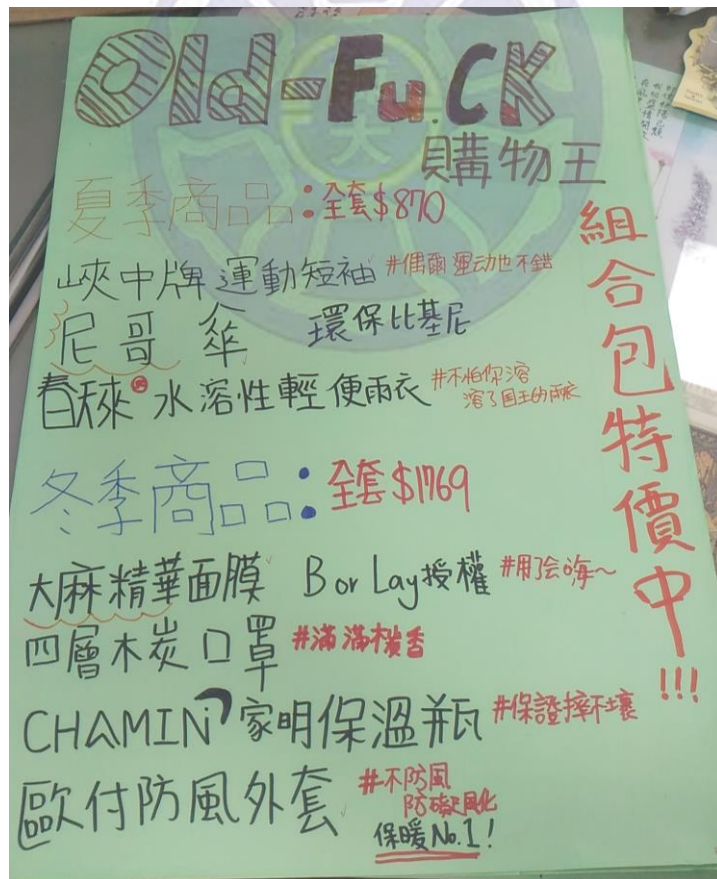 Old-Fu.CK
購物王
夏季商品:全套$870
峽中牌運動短袖 #偶爾運动也不錯
尼哥傘 環保比基尼
春天來 水溶性輕便雨衣 #不怕你溶
溶了国王的雨衣
冬季商品:全套$1769
大麻精華面膜 Bor Lay授權 #用了会嗨~
四層木炭口罩 #滿滿橫香
CHAMIN 家明保溫瓶 #保證摔不壞
歐付防風外套 #不防風
防礙風化
保暖No.1!
組合包特價中!!!